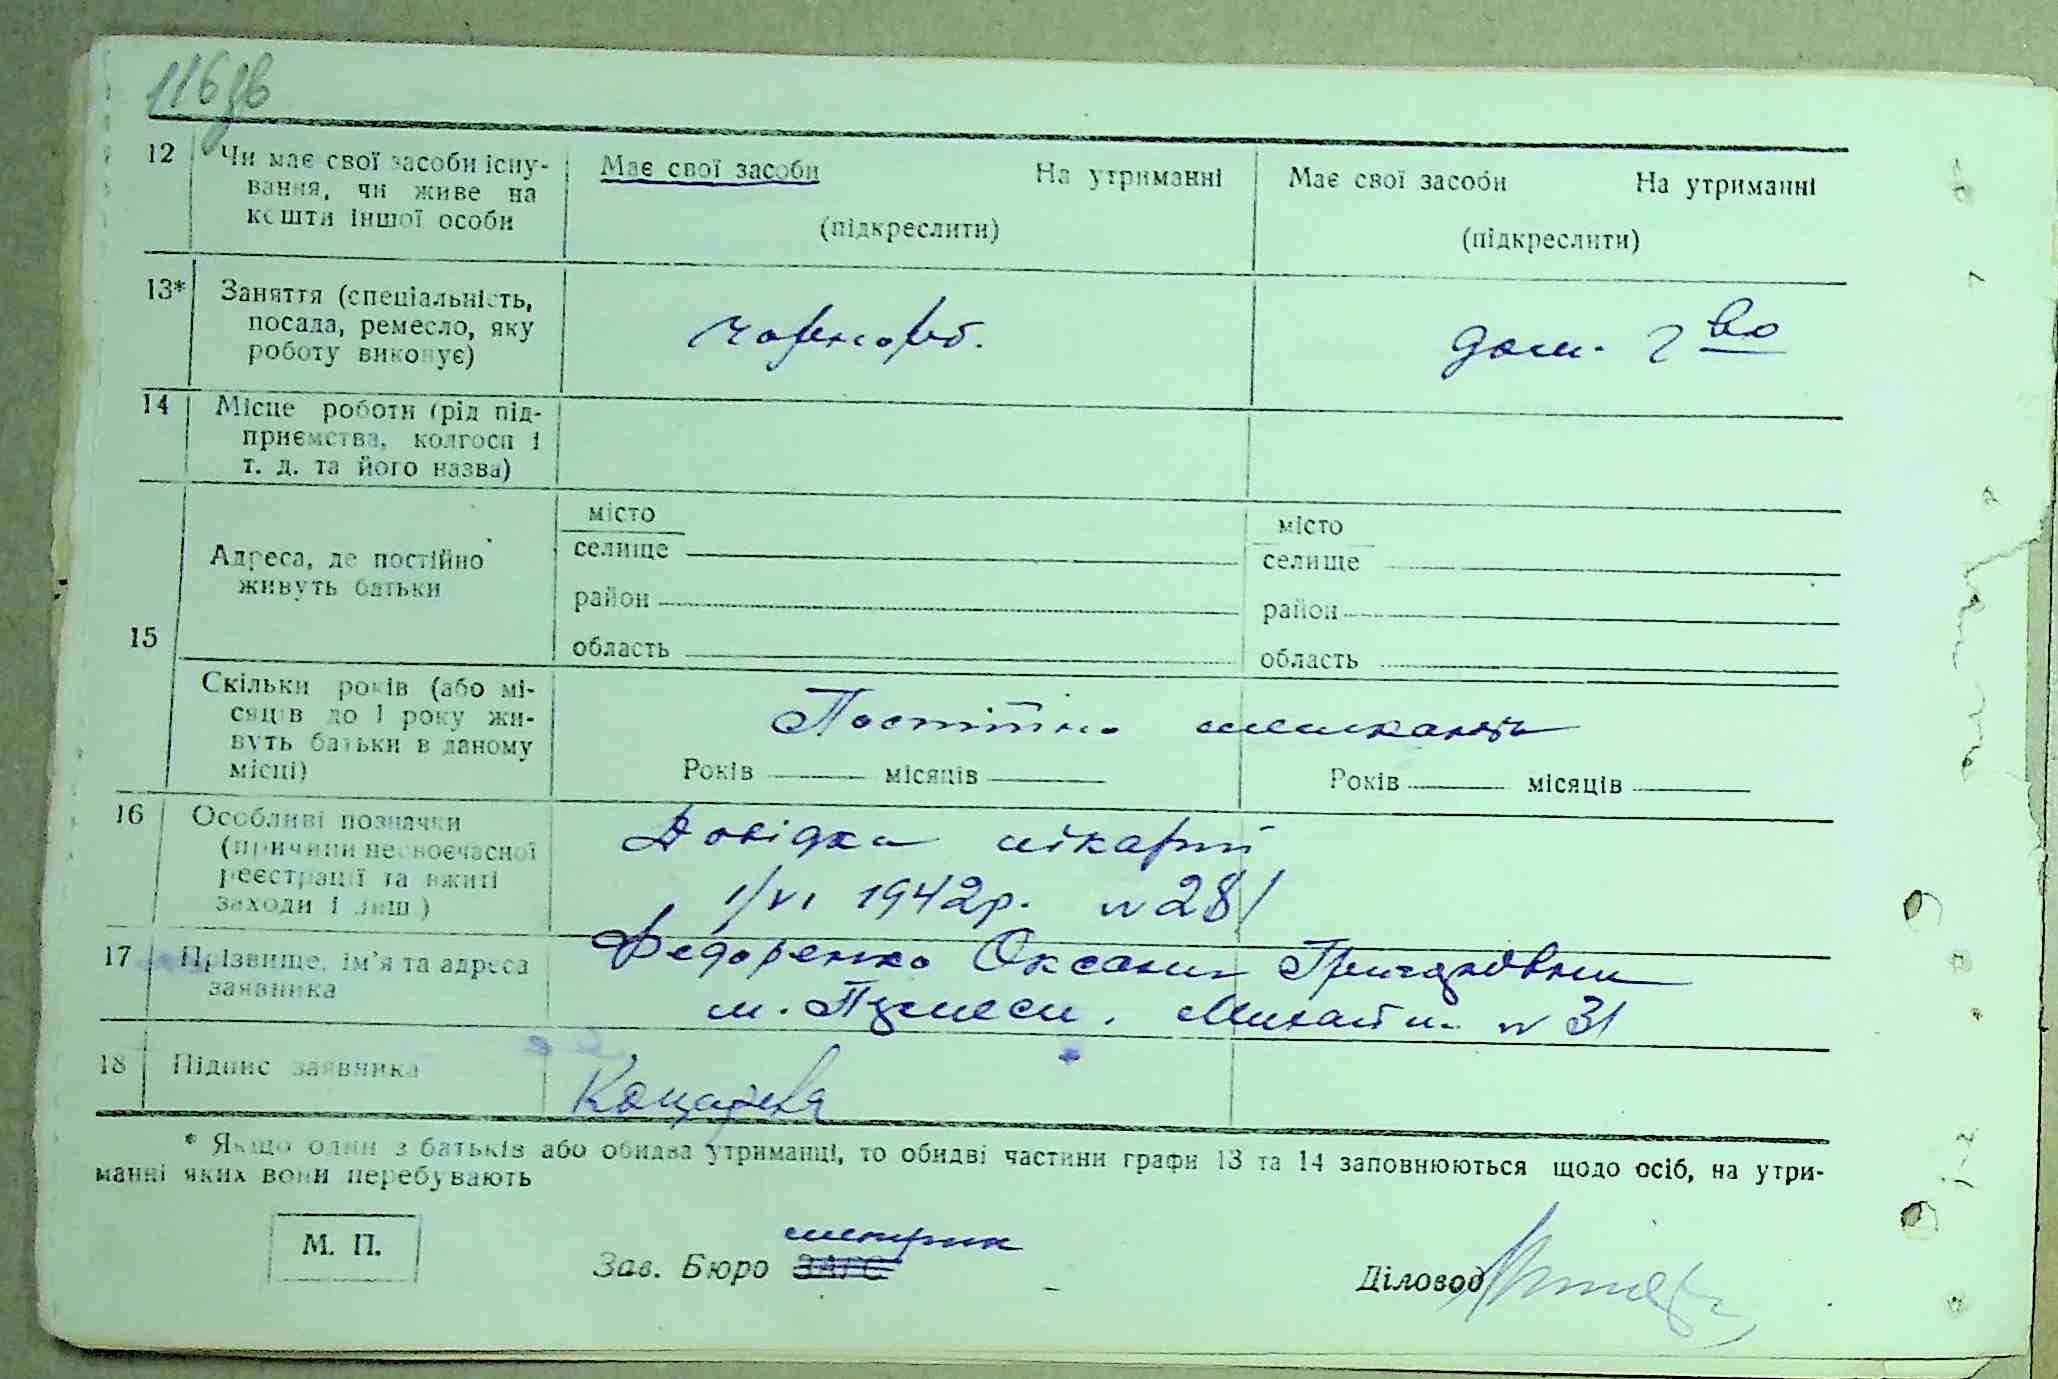 116зв
12 Чи має свої засоби існу-
вання, чи живе на
кошти іншої особи
Має свої засоби На утриманні
(підкреслити)
Має свої засоби На утриманні
(підкреслити)
13* Заняття (спеціальність,
посада, ремесло, яку
роботу виконує)
чорнороб.
дом. г-во
14 Місце роботи (рід під-
приємства, колгосп і
т. д. та його назва)
15
Адреса, де постійно
живуть батьки
місто
селище
район
область
місто
селище
район
область
Скільки років (або мі-
сяців до 1 року жи-
вуть батьки в даному
місці)
Постійно мешканці
Років місяців
Років місяців
16 Особливі позначки
(причини несвоєчасної
реєстрації та вжиті
заходи і інш.)
Довідка лікарні
1/VI 1942р. №281
17 Прізвище, ім'я та адреса
заявника
Федоренко Оксани
м. №31
18 Підпис заявника
* Якщо один з батьків або обидва утриманці, то обидві частини графи 13 та 14 заповнюються щодо осіб, на утри-
манні яких вони перебувають
М. П.
метрик
Зав. Бюро ЗАГС
Діловод